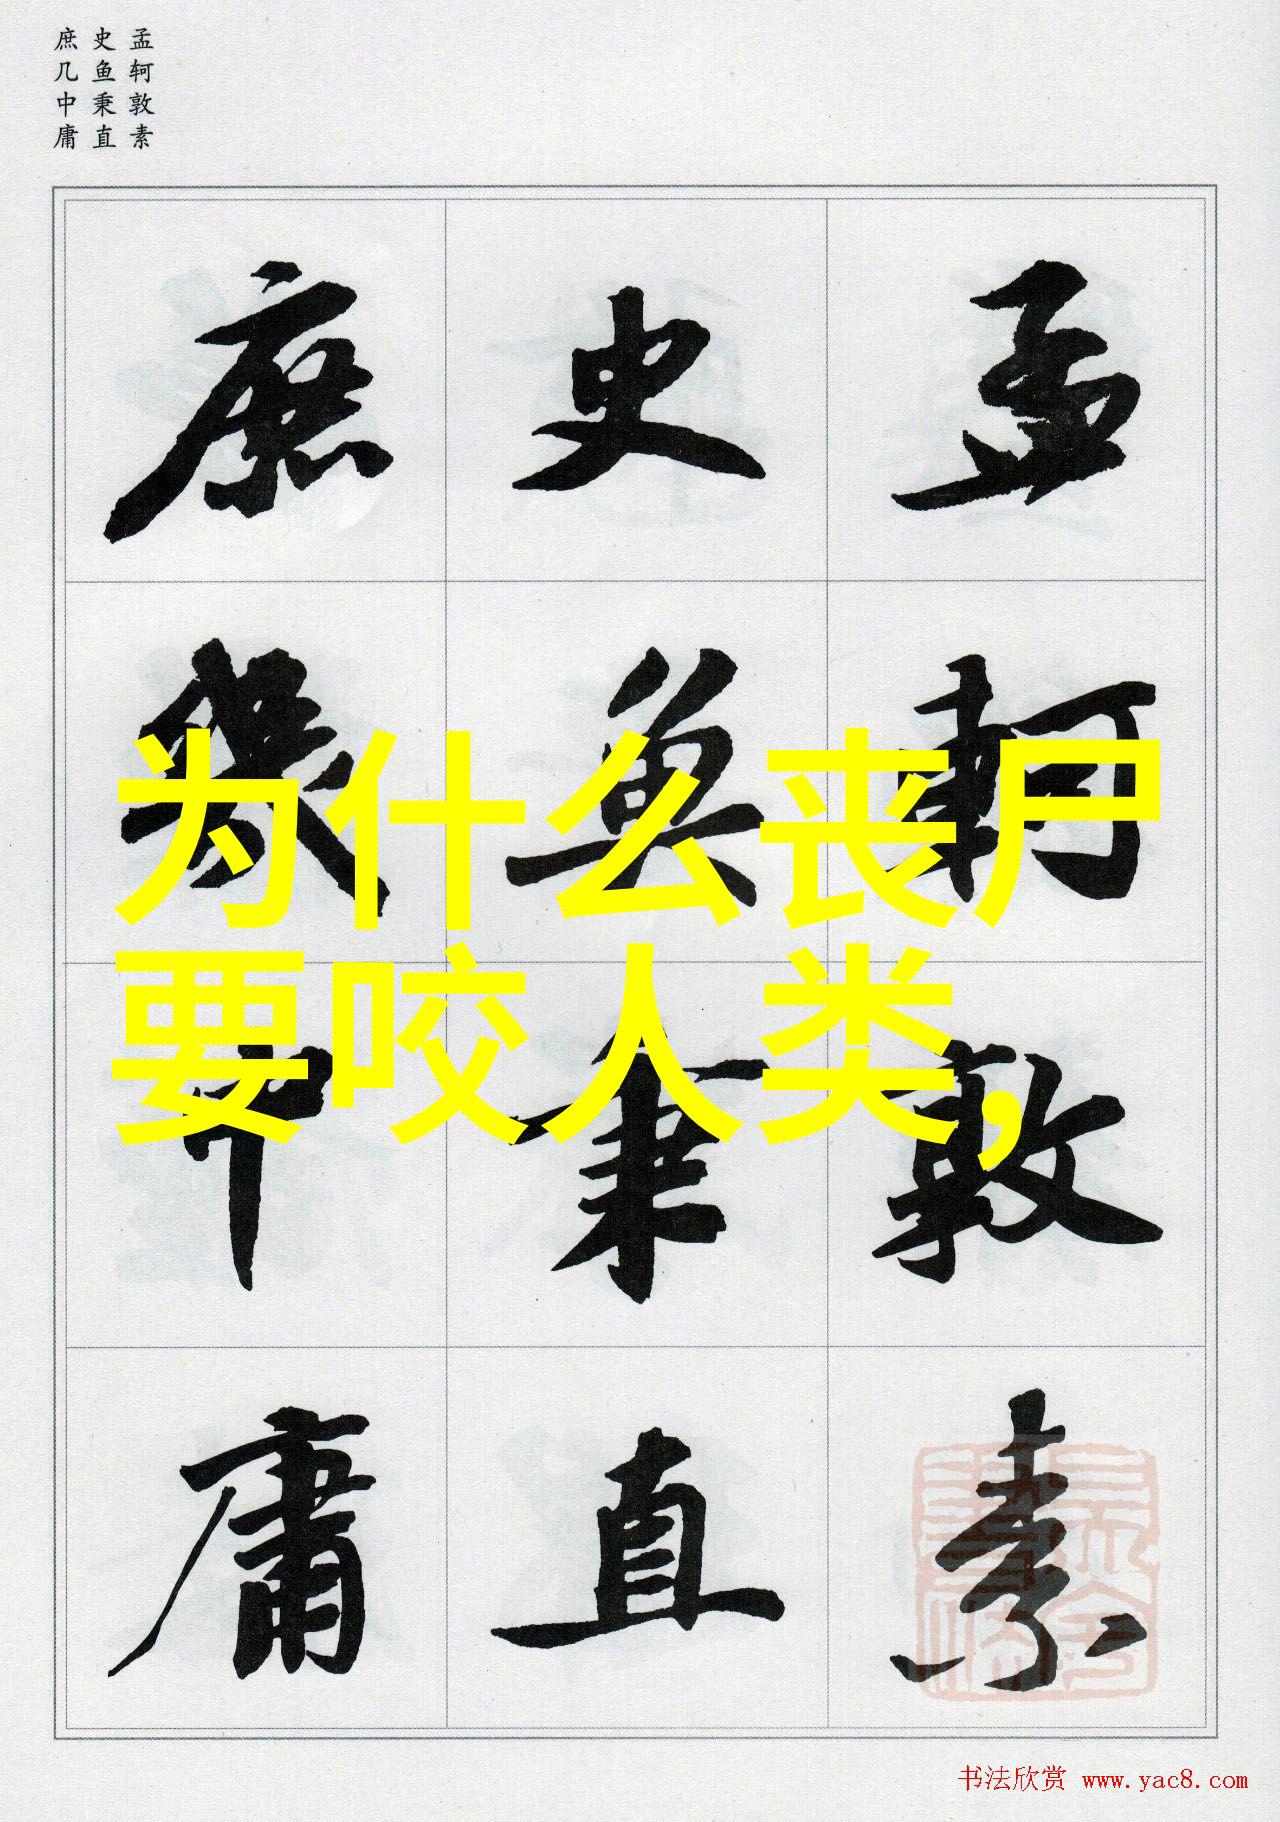 孟轲敦素
史鱼秉直
庶几中庸
孟軻敦素
史魚秉直
庶幾中庸
为什么丧尸
要咬人类，
书法欣赏 www.yac8.com